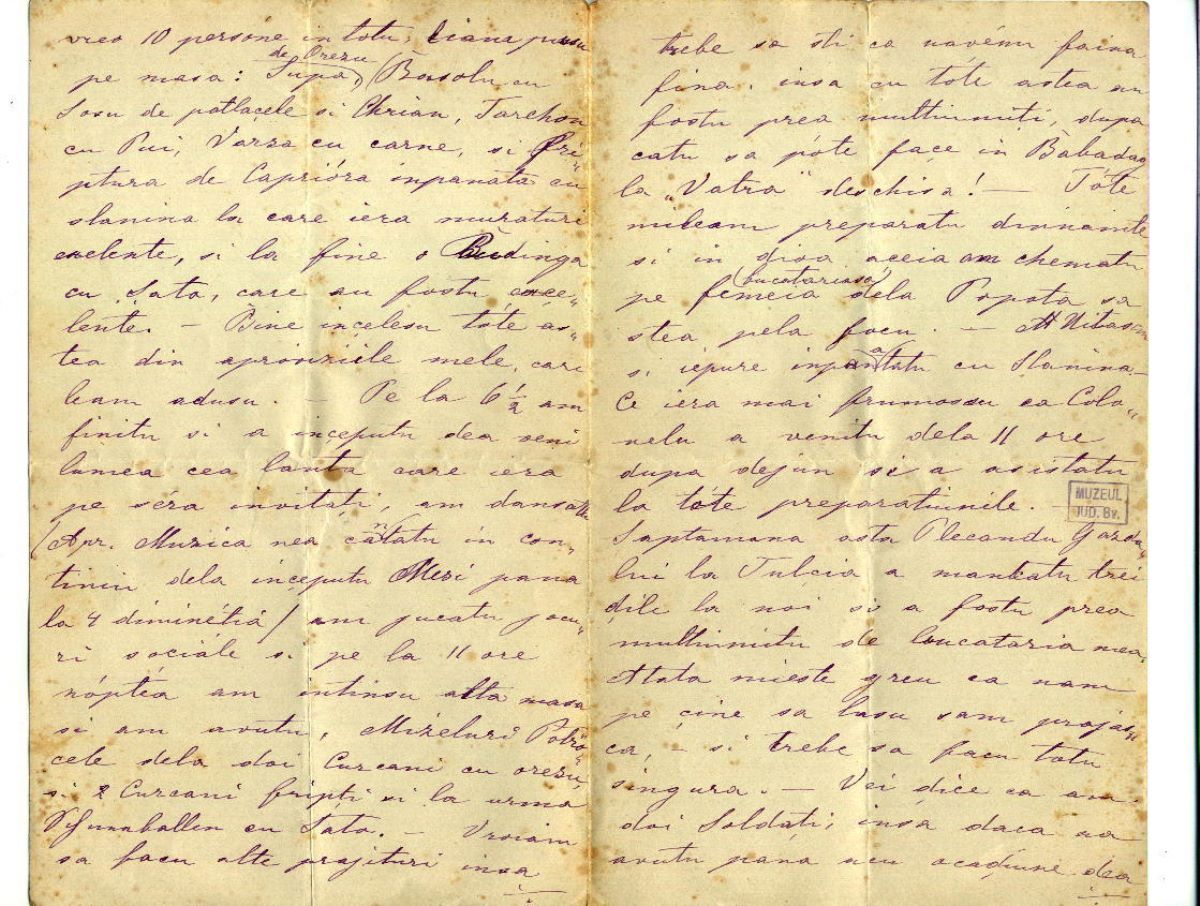 vreo 10 persone in totu;
pe masa: Supa de Orezu (Borsolu cu
Sosu de patlacele si Chrian, Tarchon
cu Pui, Varza cu carne, si Fri„
ptura de Caprióra inpanata cu
slanina la care iera muraturi
exelente, si la fine o Budinga
cu Şato, care au fostu exce„
lente. — Bine inçelesu tote as„
tea din aproviziile mele, cari
leam adusu. — Pe la 6 ½ am
finitu si a inçeputu dea veni
lumea cea lanta care iera
pe séra invitaţi, am dansatu
(Apr. Muzica nea cântatu in con„
tiniu dela inçeputu Mesi pana
la 4 diminéţiá / am jucatu jocu„
ri sociále si pe la 11 ore
nóptea am intinsu alta masa
si am avutu, Mizeluri Potro„
cele dela doi Curcani cu orezu,
si 2 Curcani fripţi si la urma
Schnnballen cu Şato. — Vroiam
sa facu alte prajituri insa
trebe sa sti ca navému faina
fina, insa cu tóte astea au
fostu prea multiumiţi, dupa
catu sa póte façe in Băbadag
la „Vatra" deschisa! — Tóte
mileam preparatu dinnainte
si in dioa aceia am chematu
pe femeia (bucatariasa) dela Popota sa
stea pela focu. —
si iepure inpanatatu cu Slanina —
Ce iera mai frumosu ca Colo„
nelu a venitu dela 11 ore
dupa dejun si a asistatu
la tóte preparatiunile. —
MUZEUL
JUD. Bv.
Saptamana asta Plecandu Garda„
lui la Tulcia a mankatu trei
ḑile la noi si a fostu prea
multiumitu de bucataria mea.
Atata mieste greu ca nam
pe çine sa lasu sam prajas„
ca, — si trebe sa facu totu
singura. — Vei dice ca am
doi Soldaţi; insa daca na
avutu pana acu ocaḑiune dea